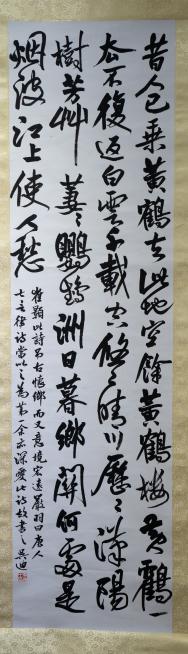 昔人已乘黄鶴去此地空餘黄鶴樓黄鶴一
去不復返白雲千載空悠々晴川歷々漢陽
樹芳艸萋々鸚鵡洲日暮鄉關何處是
烟波江上使人愁
崔顥此詩弔古懷鄉而又意境宏遠嚴羽曰唐人
七言律詩當以之為第一余亦深愛此詩故書之吳迪